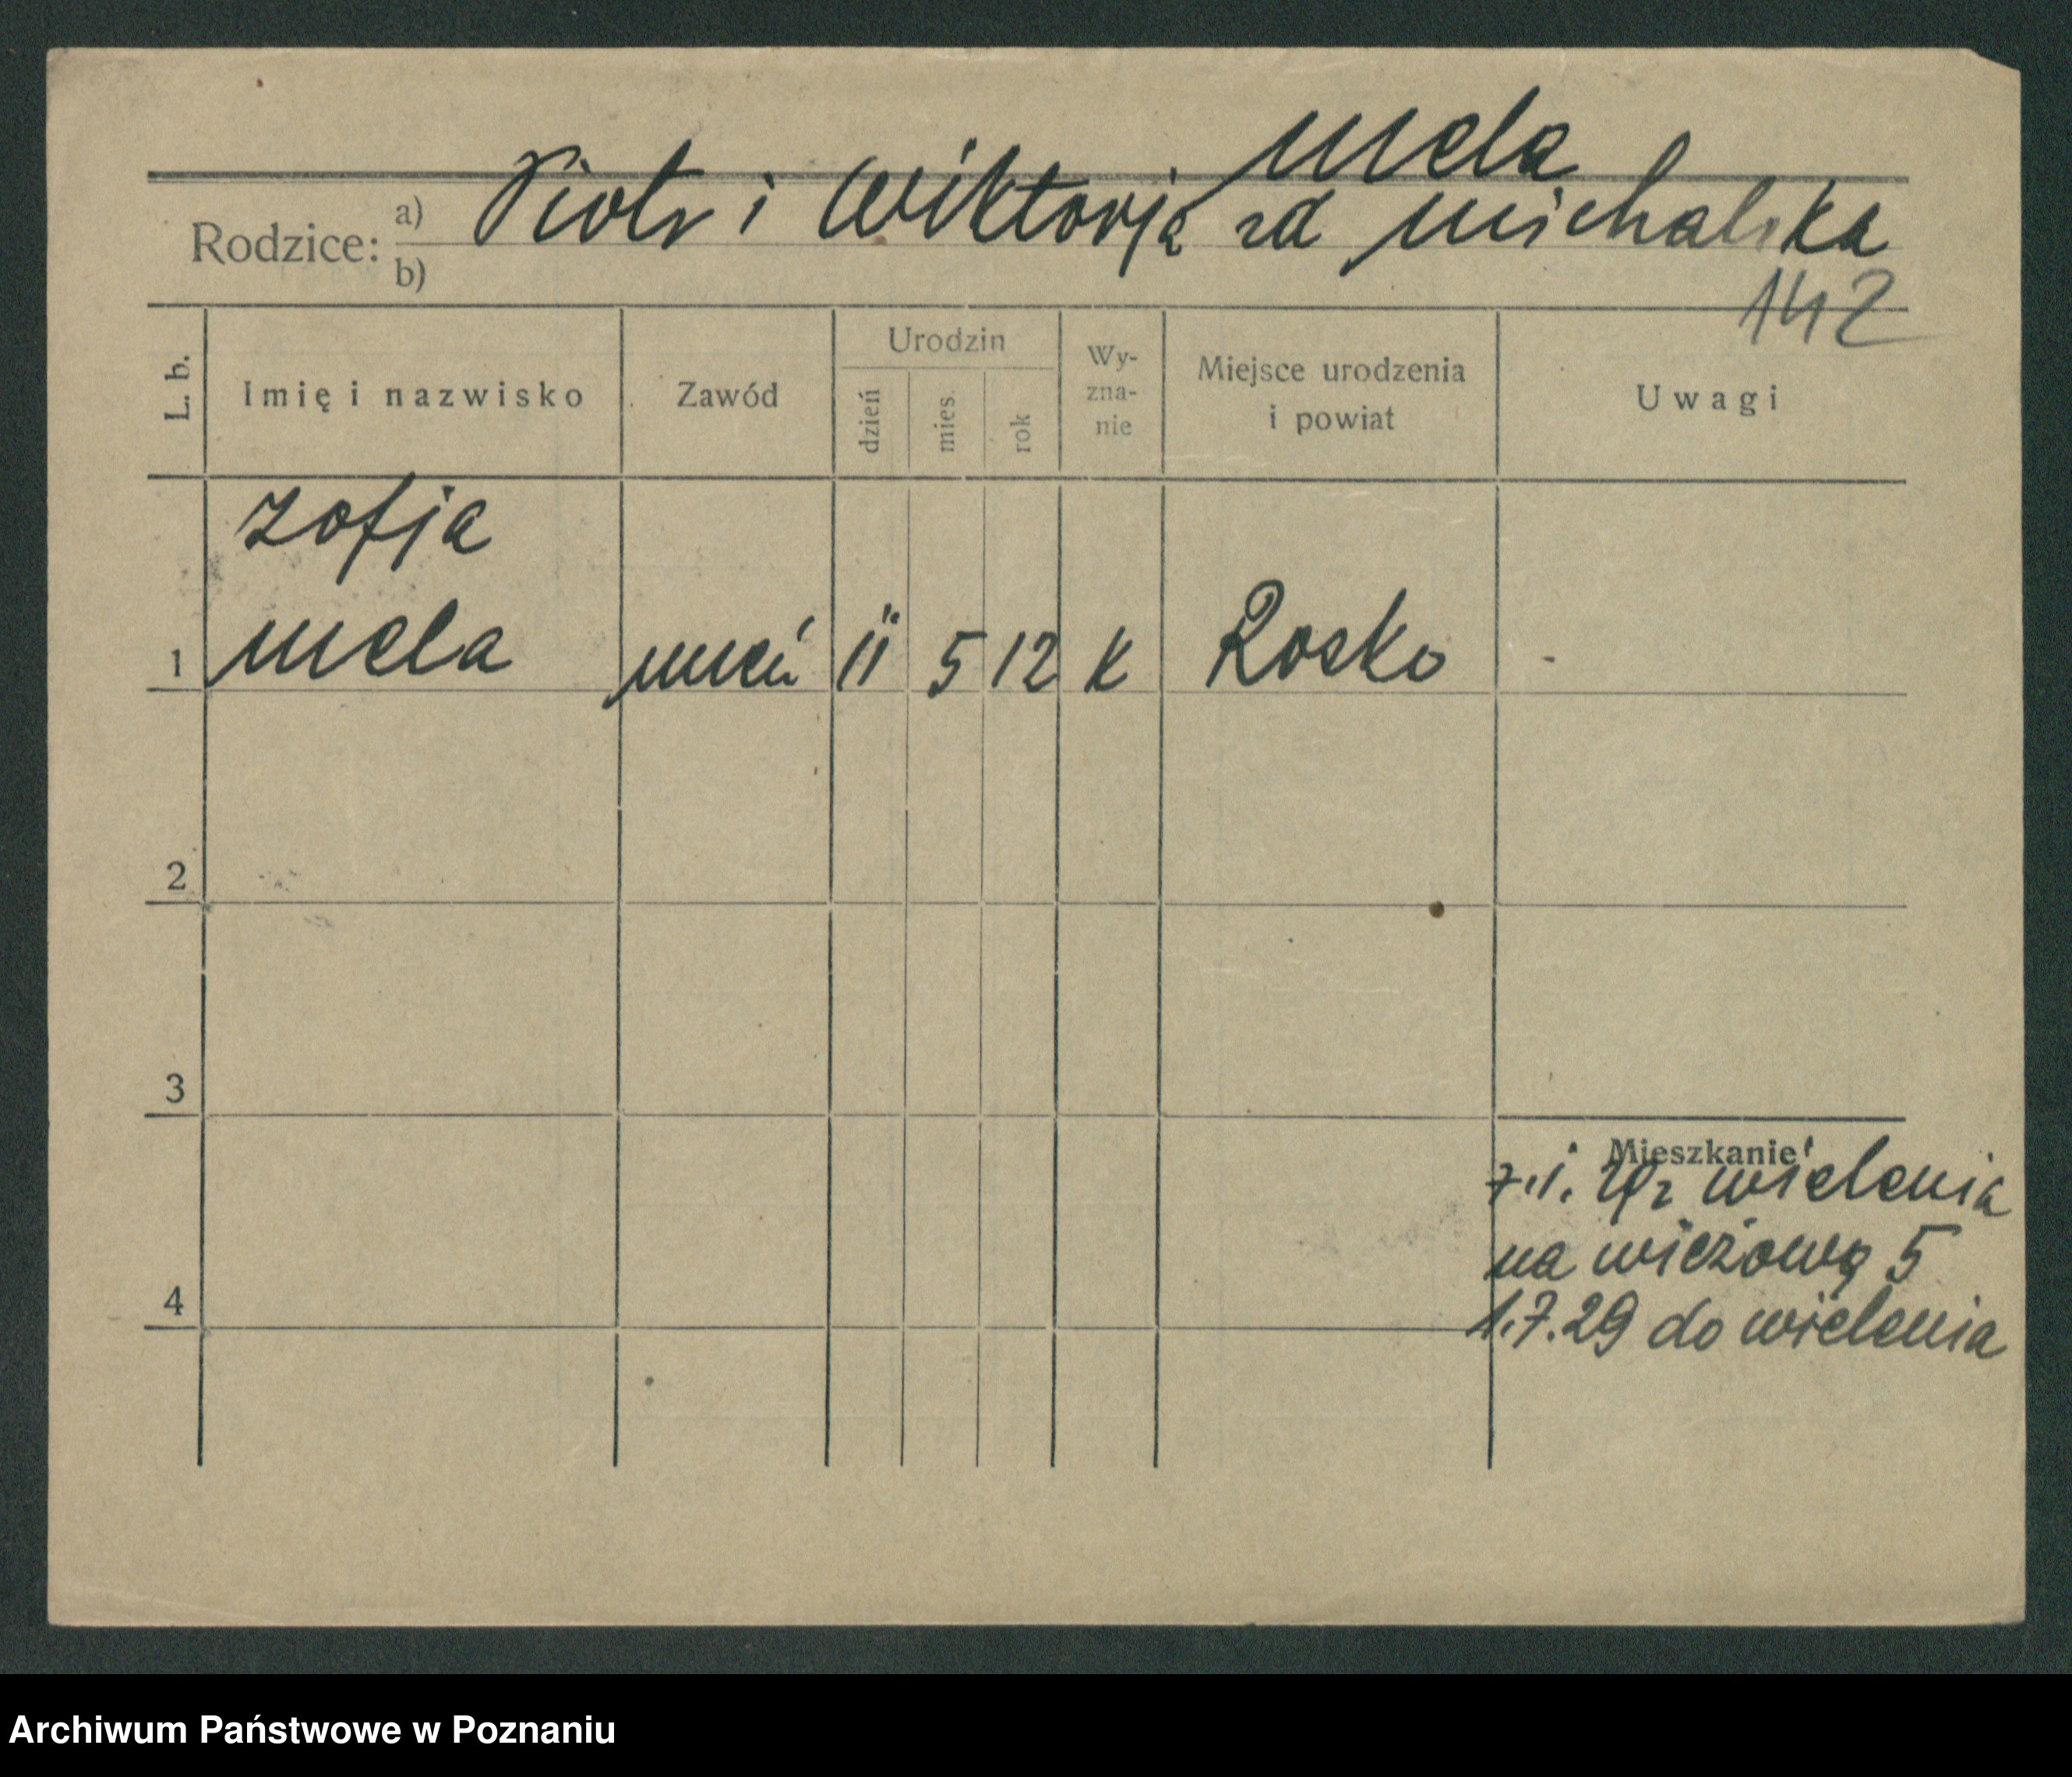 Mela
Rodzice: a) Piotr i Wiktorja zd Michalska
b)
142
L. b. Imię i nazwisko Zawód Urodzin dzień mies. rok Wy-zna-nie Miejsce urodzenia i powiat Uwagi
Zofja
1 Mela 11 5 12 K Rosko -
2
3
Mieszkanie
7.1. z Wielenia
na Wieżową 5
4
1.7.29 do Wielenia
Archiwum Państwowe w Poznaniu